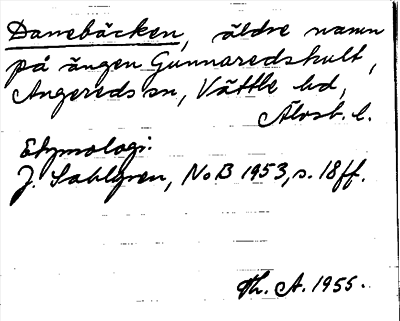 Danebäcken, äldre namn
på ängen Gunnaredshult,
Angereds sn, Vättle hd,
Älvsb. l.
Etymologi.
J. Sahlgren, NoB 1953, s. 18ff.
Th. A. 1955.